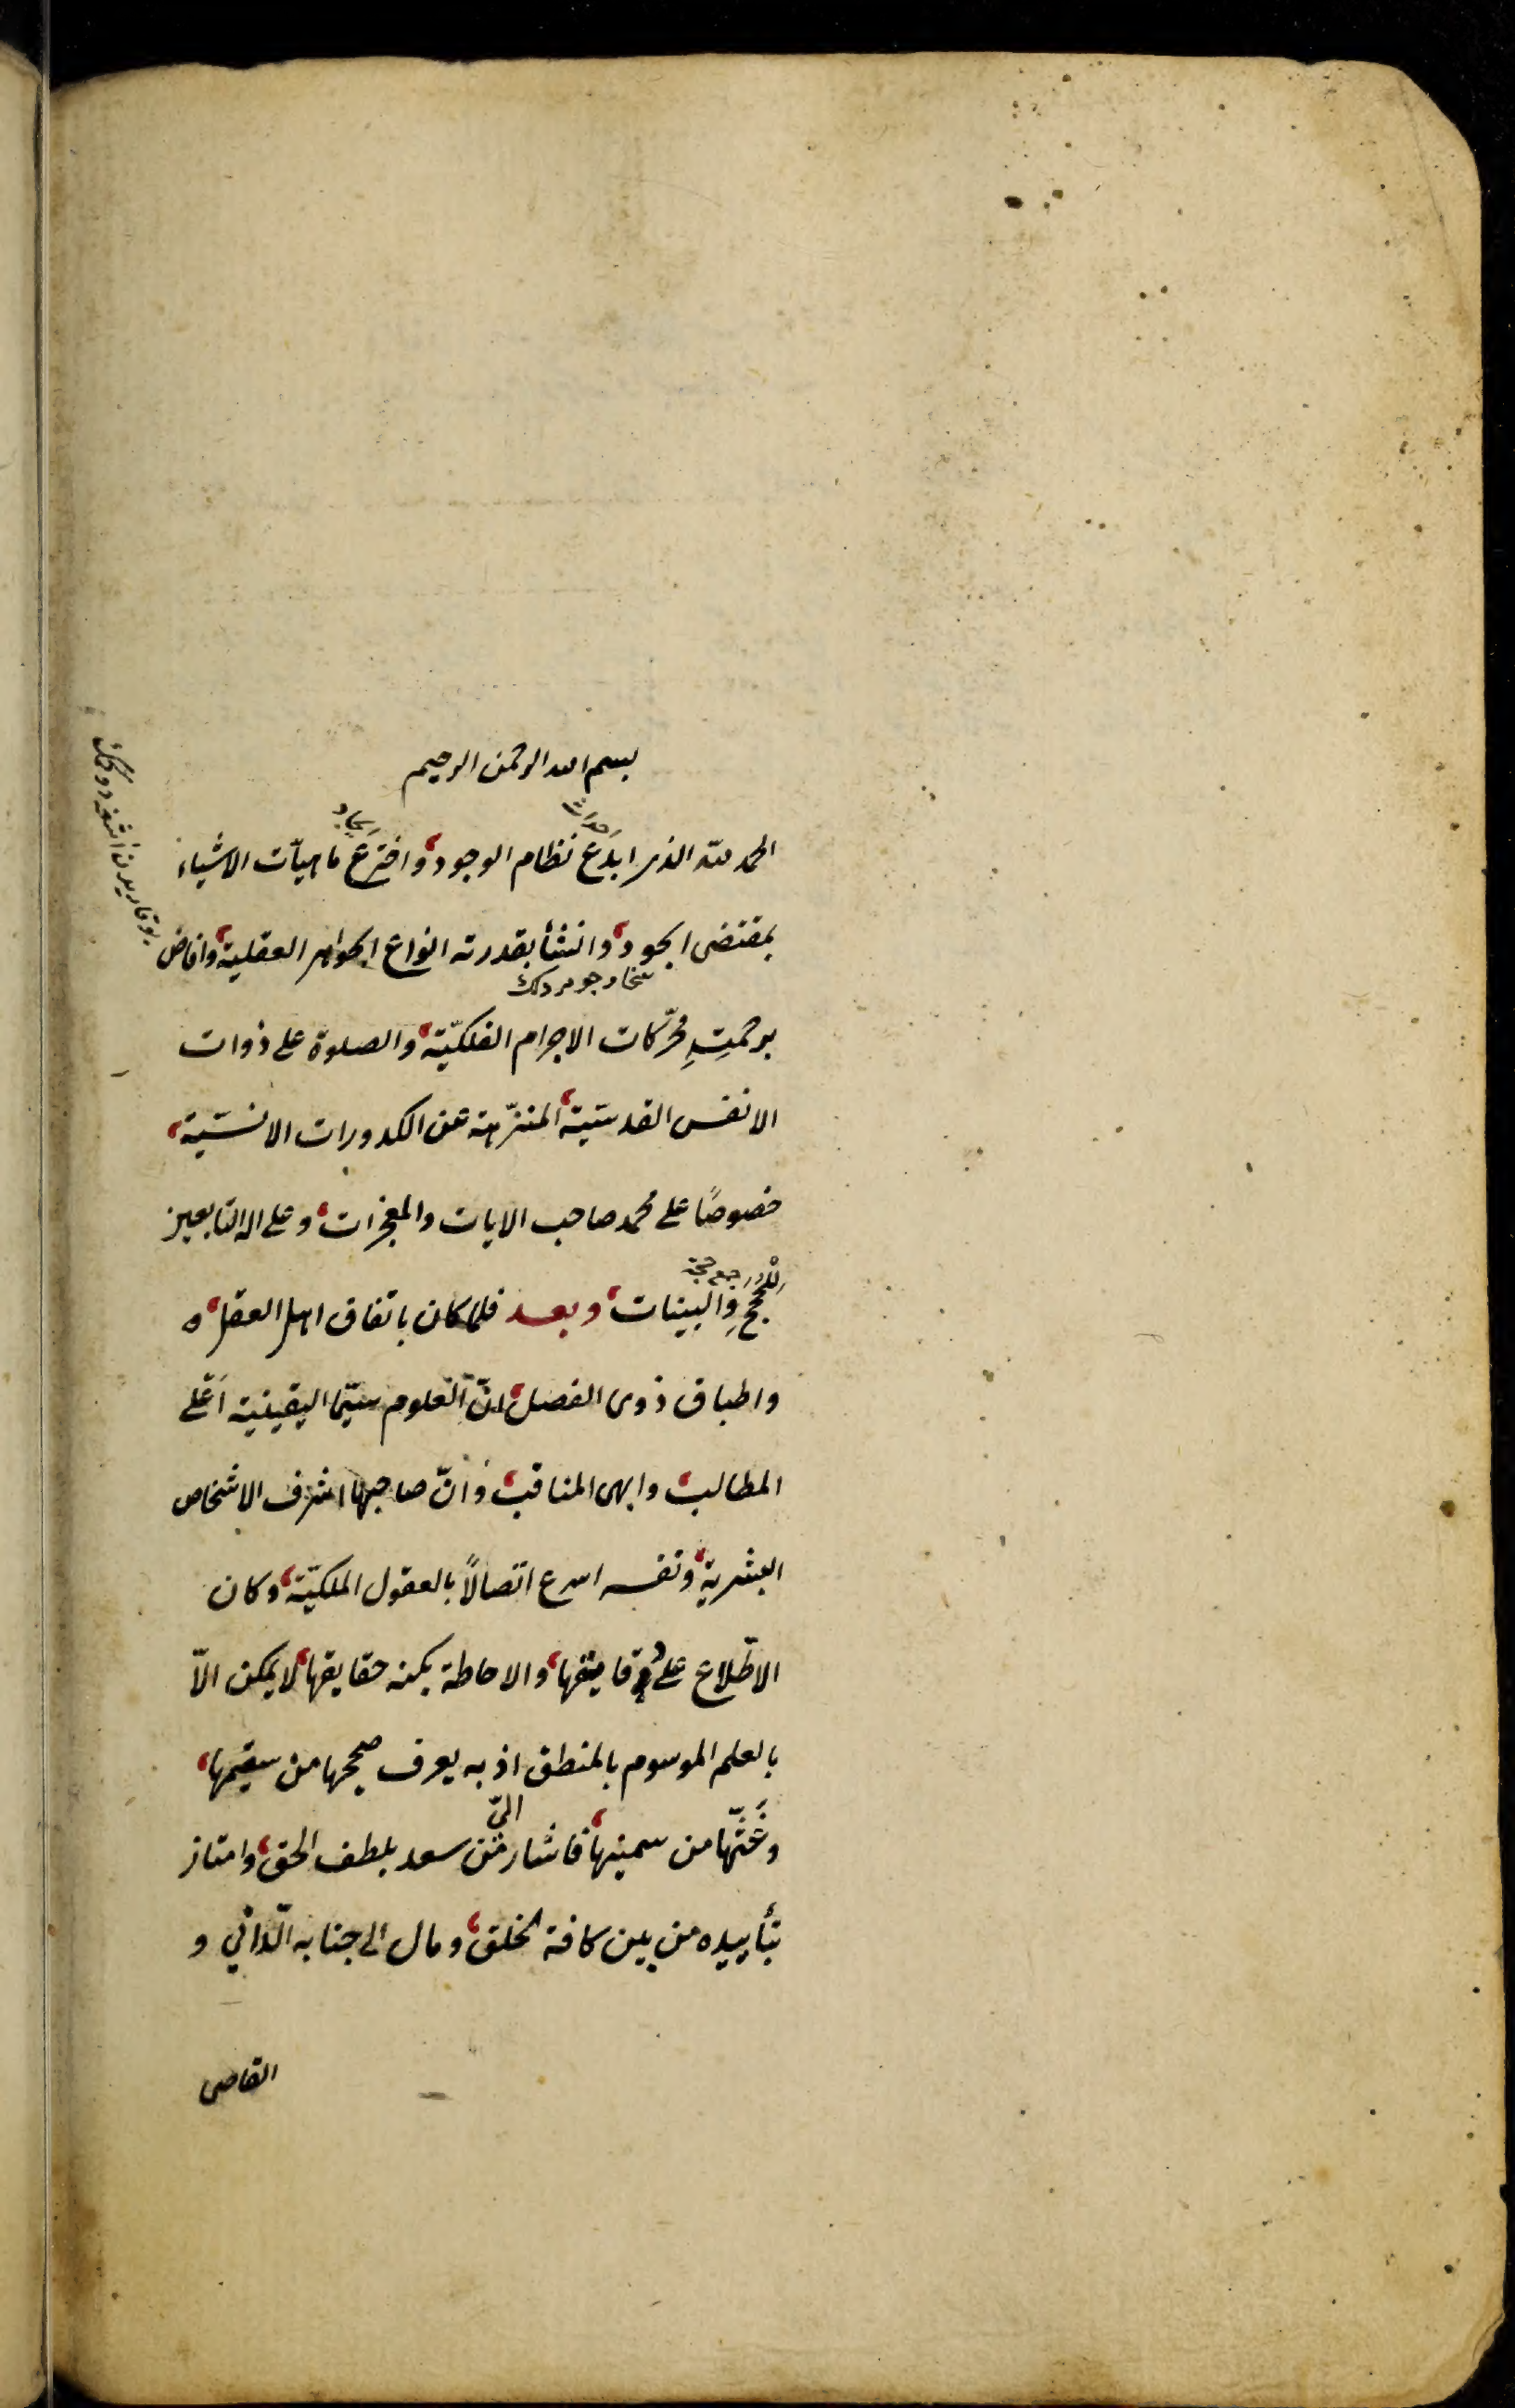 بسم الله الرحمن الرحيم
احداث
ايجاد
الحمد لله الذى ابدع نظام الوجود، واخترع ماهيآت الاشياء
بمقتضى الجود، وانشأ بقدرته انواع الجواهر العقلية، وافاض
برحمتِهِ محرّكات الاجرام الفلكيّة، والصلوة على ذوات
الانفس القدسيّة، المنزّهة عن الكدورات الانسيّة،
خصوصًا على محمد صاحب الايات والمعجزات، وعلى اله التابعين
جمع حجة
للحججِ والبينات، وبعد فلما كان باتفاق اهل العقل، ه
واطباق ذوى الفضل، انّ العلوم سيّما اليقينية اَعْلى
المطالب، وابهى المناقب، وَانّ صاحبها اشرف الاشخاص
البشرية، ونفسه اسرع اتّصالاً بالعقول الملكيّة، وكان
الاطّلاع على دقايقها، والاحاطة بكنه حقايقها، لا يمكن الاّ
بالعلم الموسوم بالمنطق اذ به يعرف صحيحها من سقيمها،
وغَثّها من سمينها، فاشار الىّ مَن سعد بلطف الحق، وامتاز
بتأييده من بين كافة الخلق، ومال الى جنابه الدّانى و
القاصى